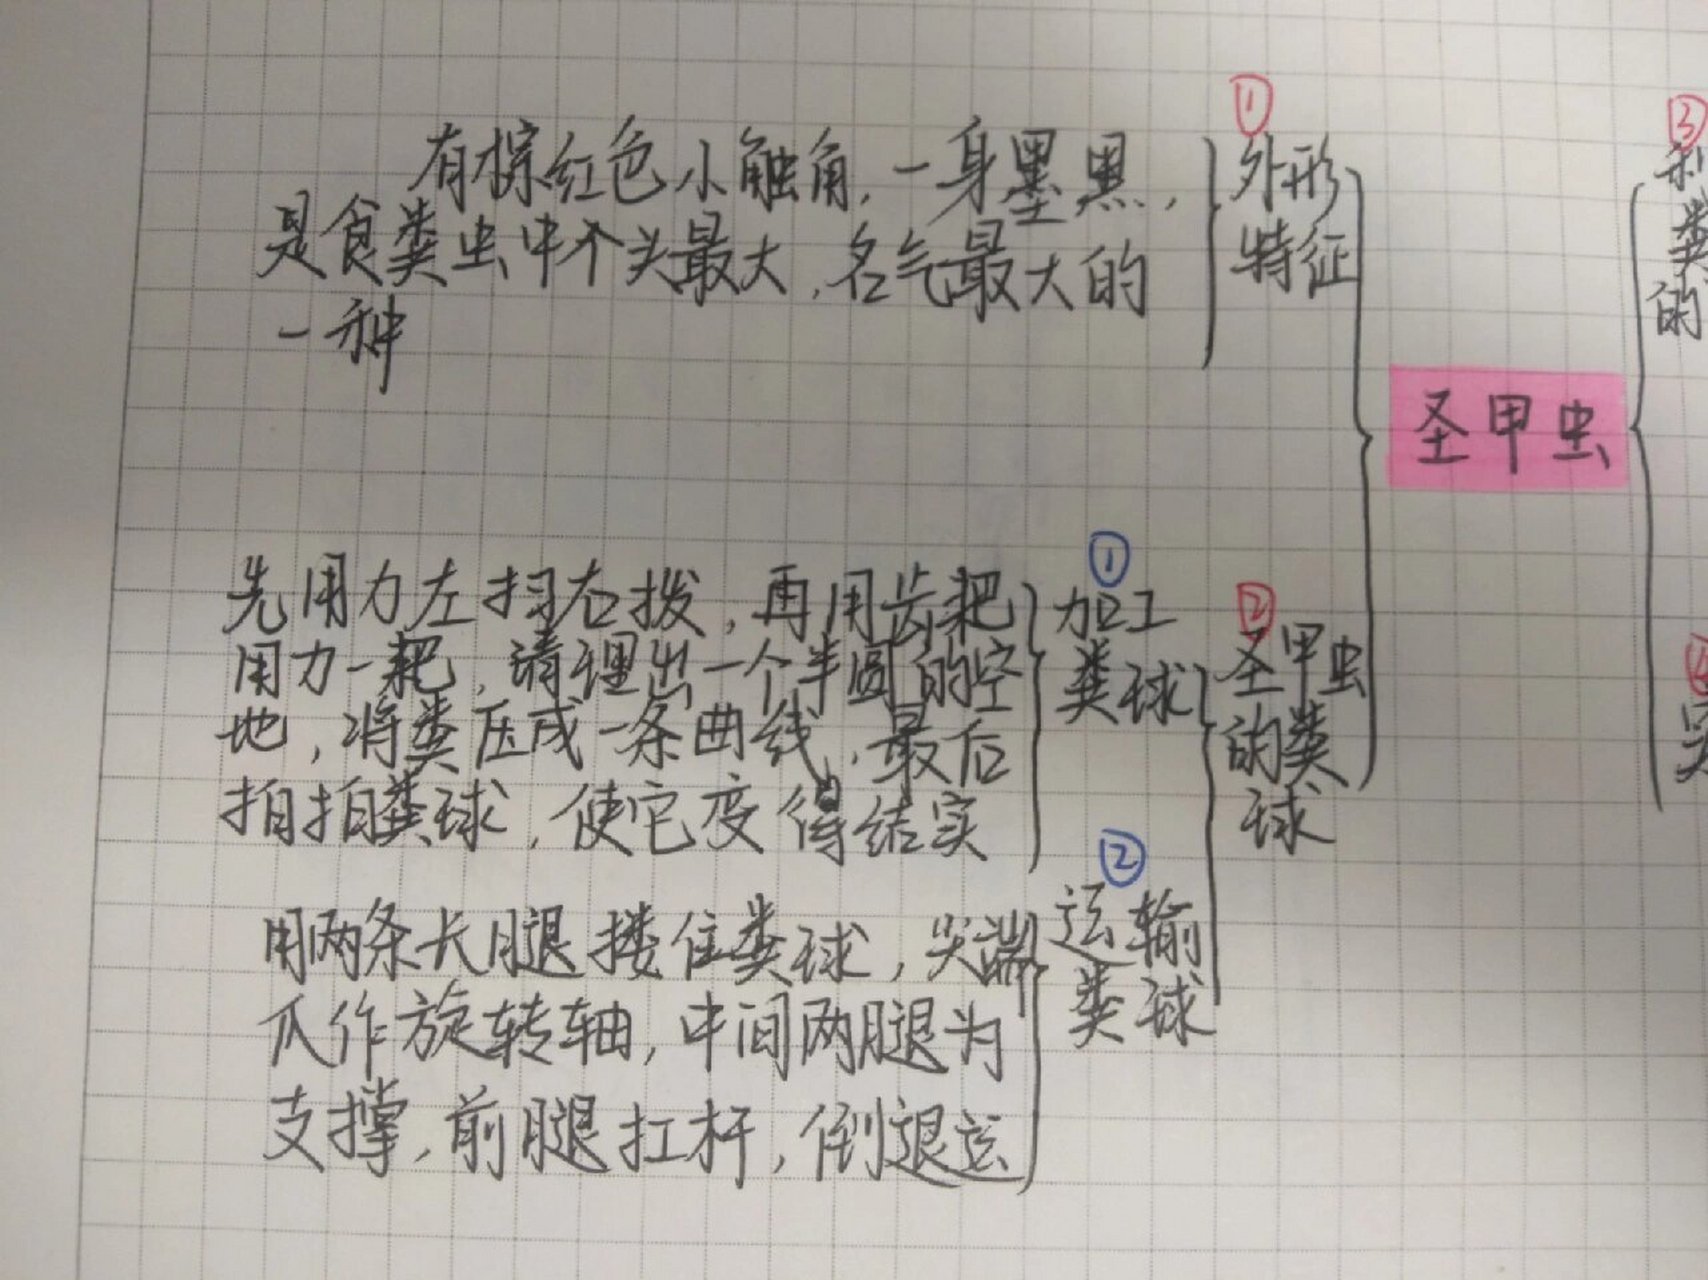 ①
外形
特征
有棕红色小触角，一身墨黑，
是食粪虫中个头最大，名气最大的
一种
圣甲虫
②
圣甲虫
的粪
球
①
加工
粪球
先用力左扫右拨，再用齿耙
用力一耙，清理出一个半圆的空
地，将粪压成一条曲线，最后
拍拍粪球，使它变得结实
②
运输
粪球
用两条长腿搂住粪球，尖端
爪作旋转轴，中间两腿为
支撑，前腿扛杆，倒退运
③
粪
的